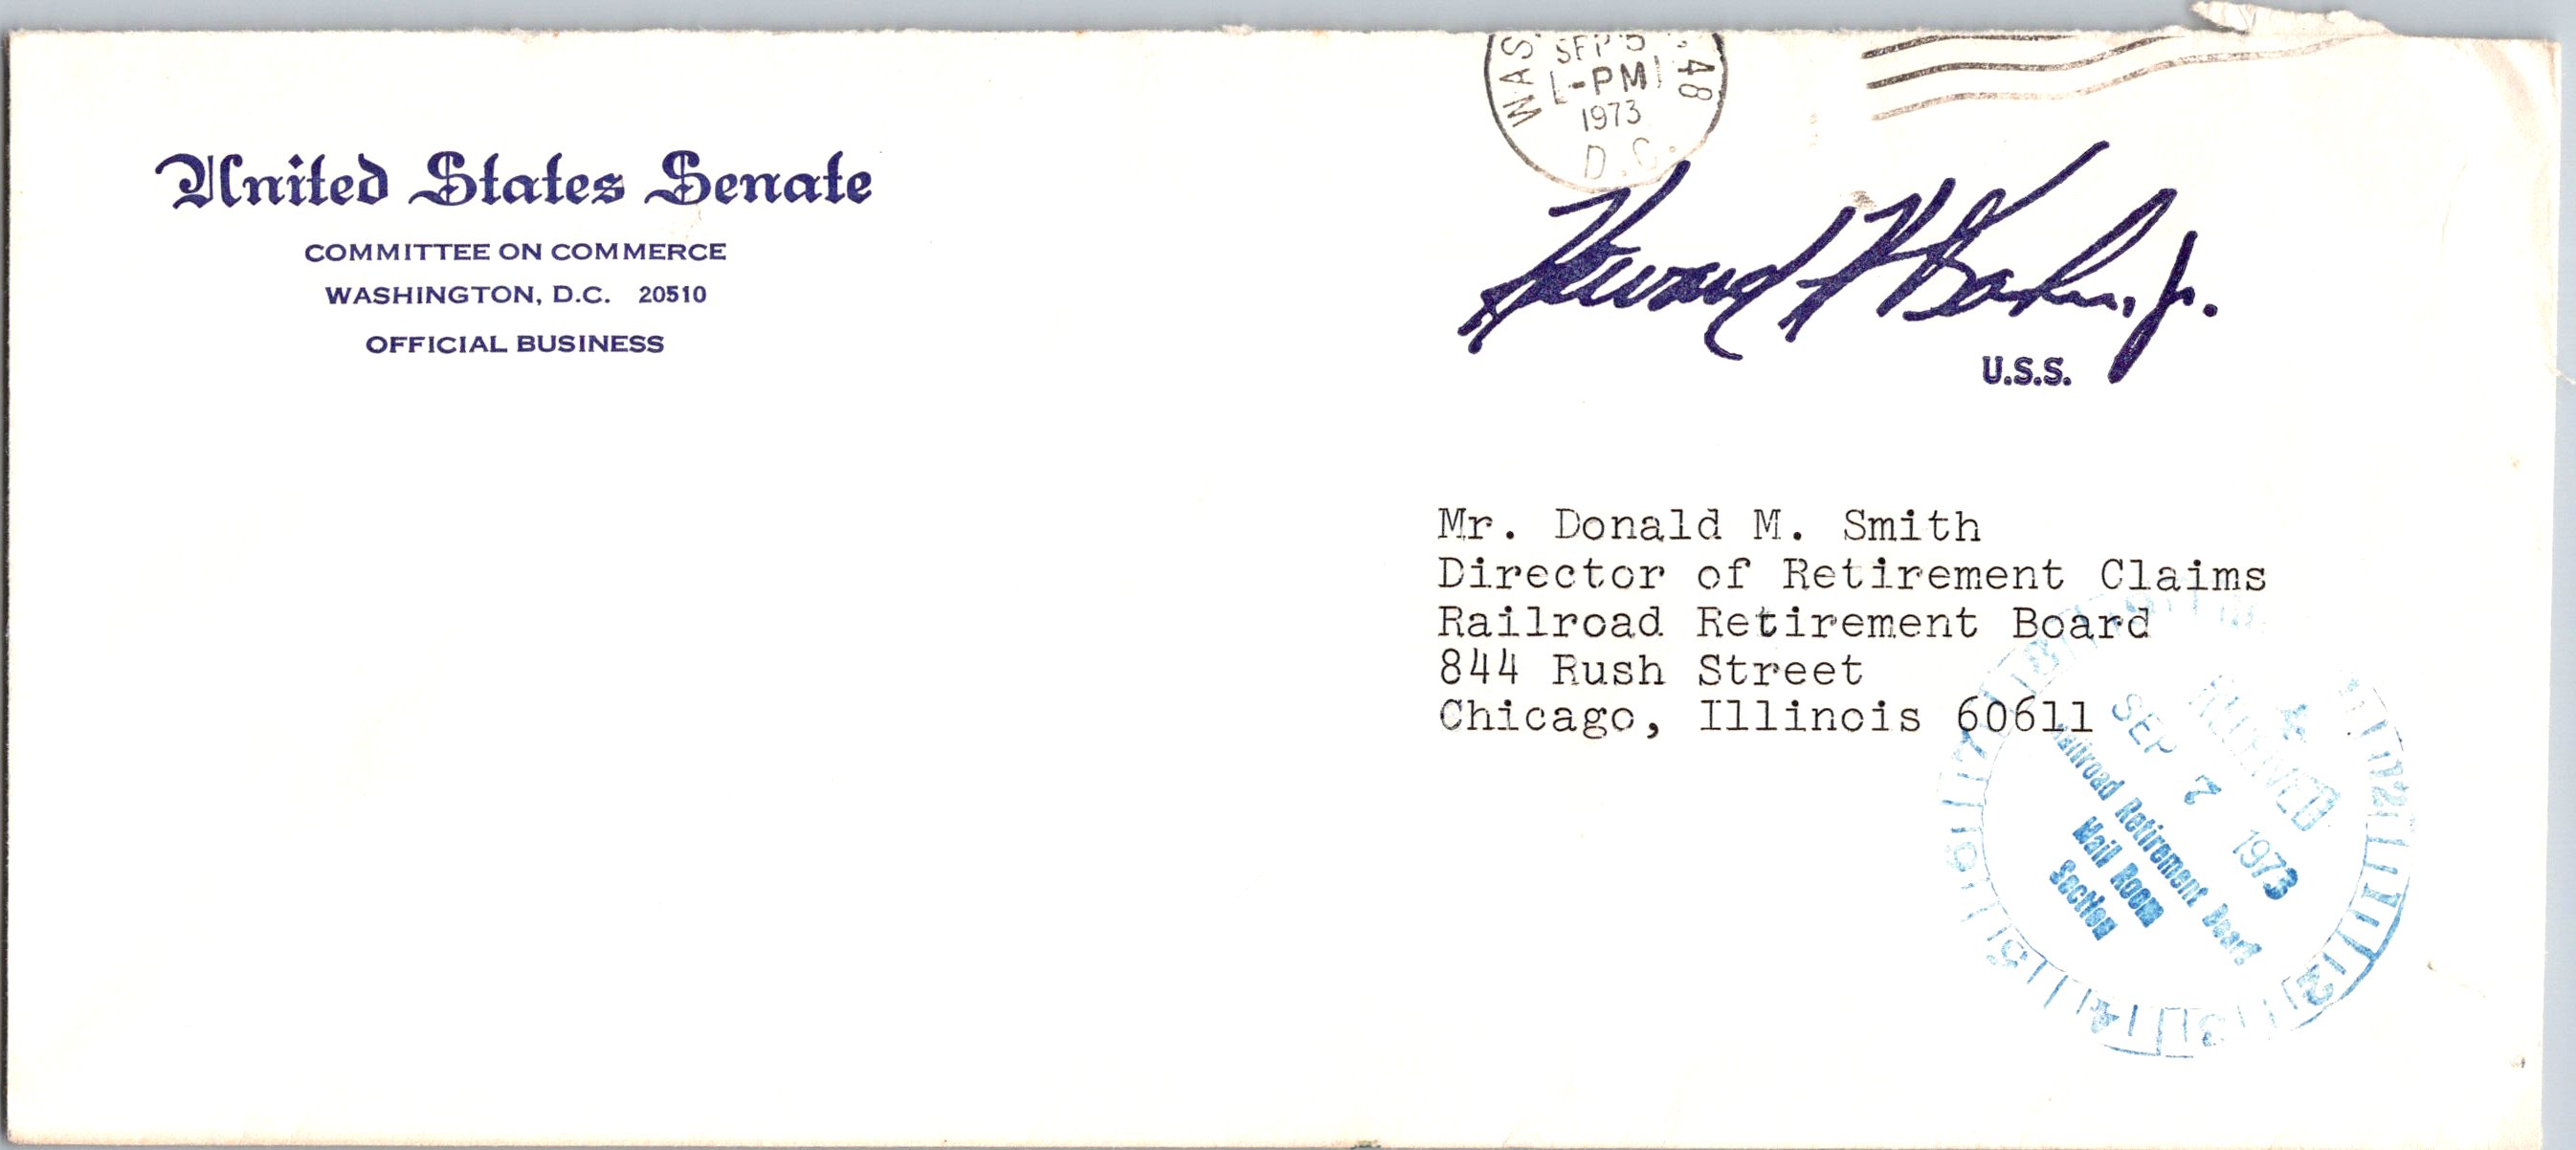 United States Senate
COMMITTEE ON COMMERCE
WASHINGTON, D.C. 20510
OFFICIAL BUSINESS
WAS
SEP 5
-PM
1973
48
D.C.
Howard H Baker, Jr.
U.S.S.
Mr. Donald M. Smith
Director of Retirement Claims
Railroad Retirement Board
844 Rush Street
Chicago, Illinois 60611
RECEIVED
SEP 7 1973
Railroad Retirement Board
Mail Room
Section
12
2
3
4
5
6
7
8